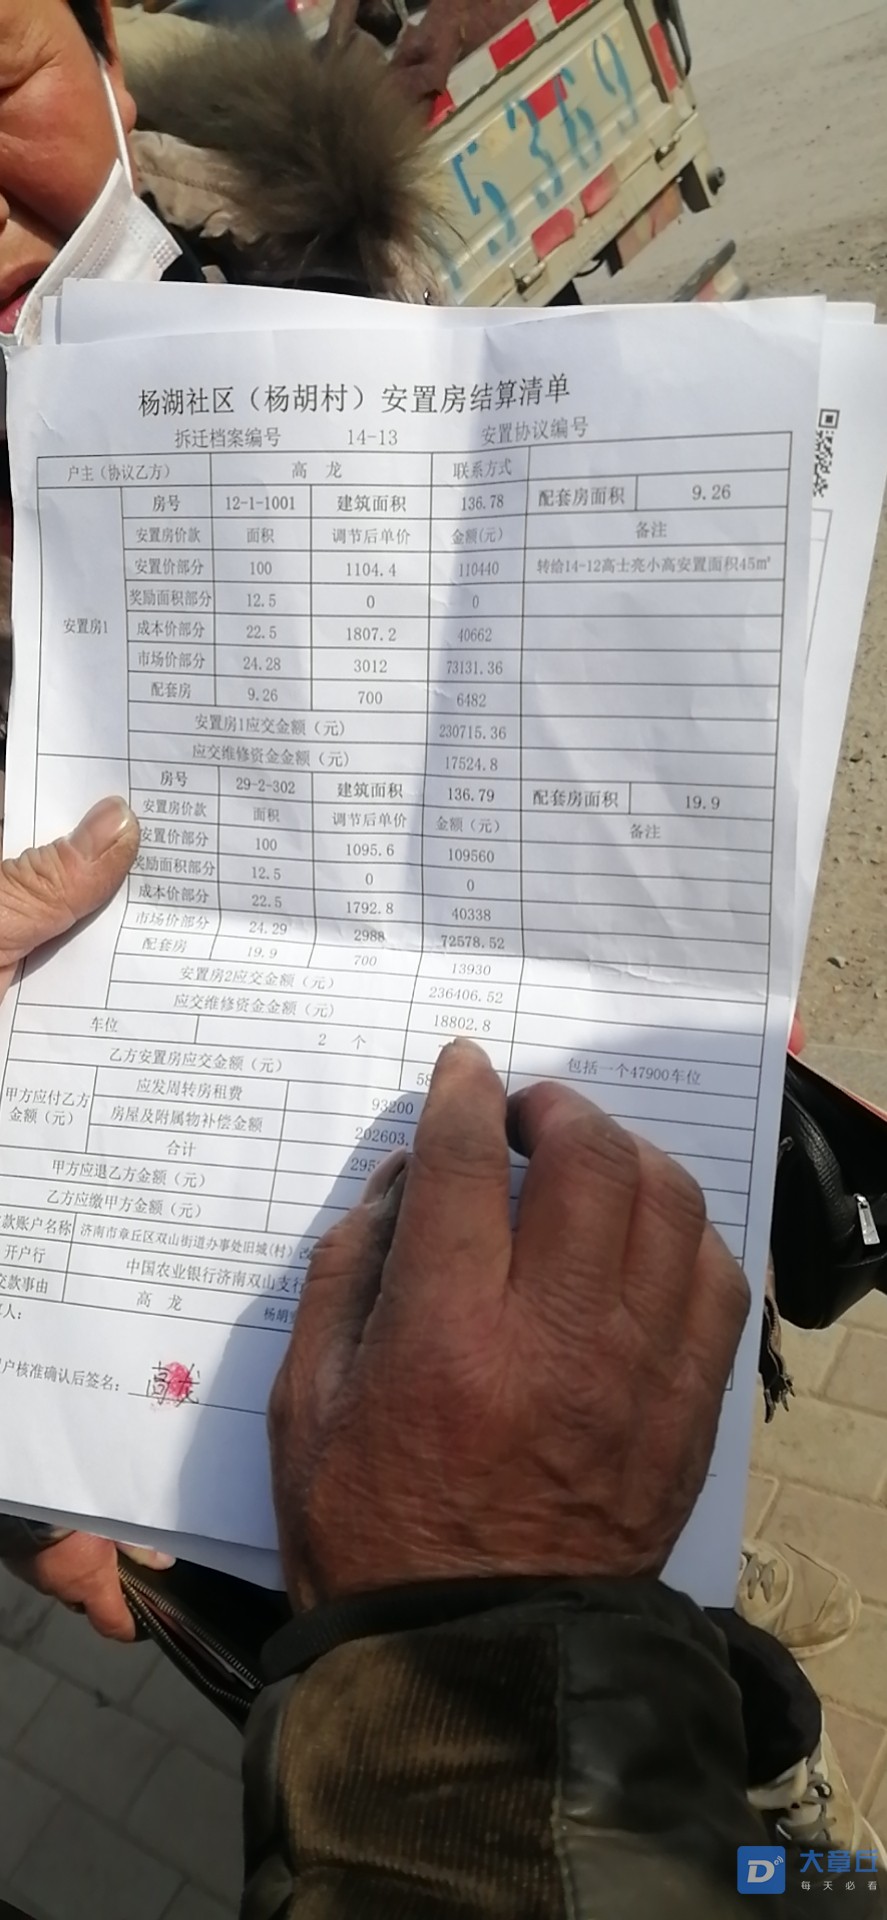 5369
杨湖社区（杨胡村）安置房结算清单
拆迁档案编号 14-13 安置协议编号
户主（协议乙方） 高 龙 联系方式
安置房1
房号 12-1-1001 建筑面积 136.78 配套房面积 9.26
安置房价款 面积 调节后单价 金额(元) 备注
安置价部分 100 1104.4 110440 转给14-12高士亮小高安置面积45㎡
奖励面积部分 12.5 0 0
成本价部分 22.5 1807.2 40662
市场价部分 24.28 3012 73131.36
配套房 9.26 700 6482
安置房1应交金额（元） 230715.36
应交维修资金金额（元） 17524.8
房号 29-2-302 建筑面积 136.79 配套房面积 19.9
安置房价款 面积 调节后单价 金额（元） 备注
安置价部分 100 1095.6 109560
奖励面积部分 12.5 0 0
成本价部分 22.5 1792.8 40338
市场价部分 24.29 2988 72578.52
配套房 19.9 700 13930
安置房2应交金额（元） 236406.52
应交维修资金金额（元） 18802.8
车位 2 个 包括一个47900车位
乙方安置房应交金额（元） 58
甲方应付乙方金额（元）
应发周转房租费 93200
房屋及附属物补偿金额 202603.
合计 295
甲方应退乙方金额（元）
乙方应缴甲方金额（元）
款账户名称 济南市章丘区双山街道办事处旧城(村)改
开户行 中国农业银行济南双山支行
交款事由 高 龙 杨胡
人：
户核准确认后签名： 高龙
大章丘
每天必看